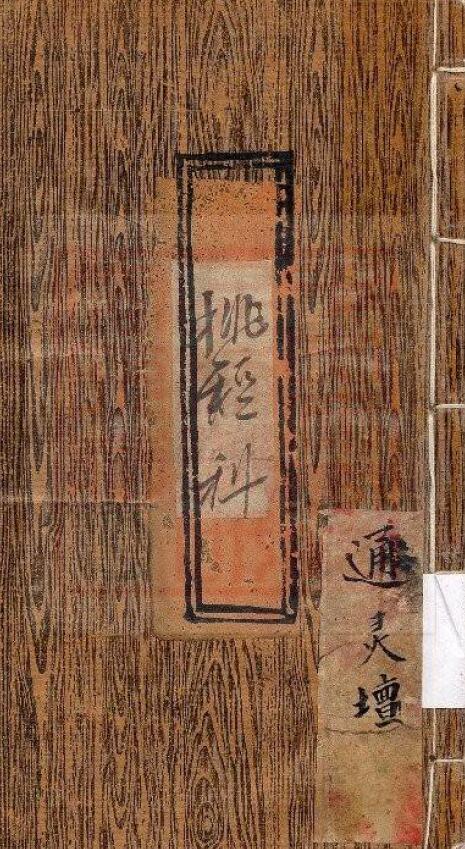 挑經科
通灵壇